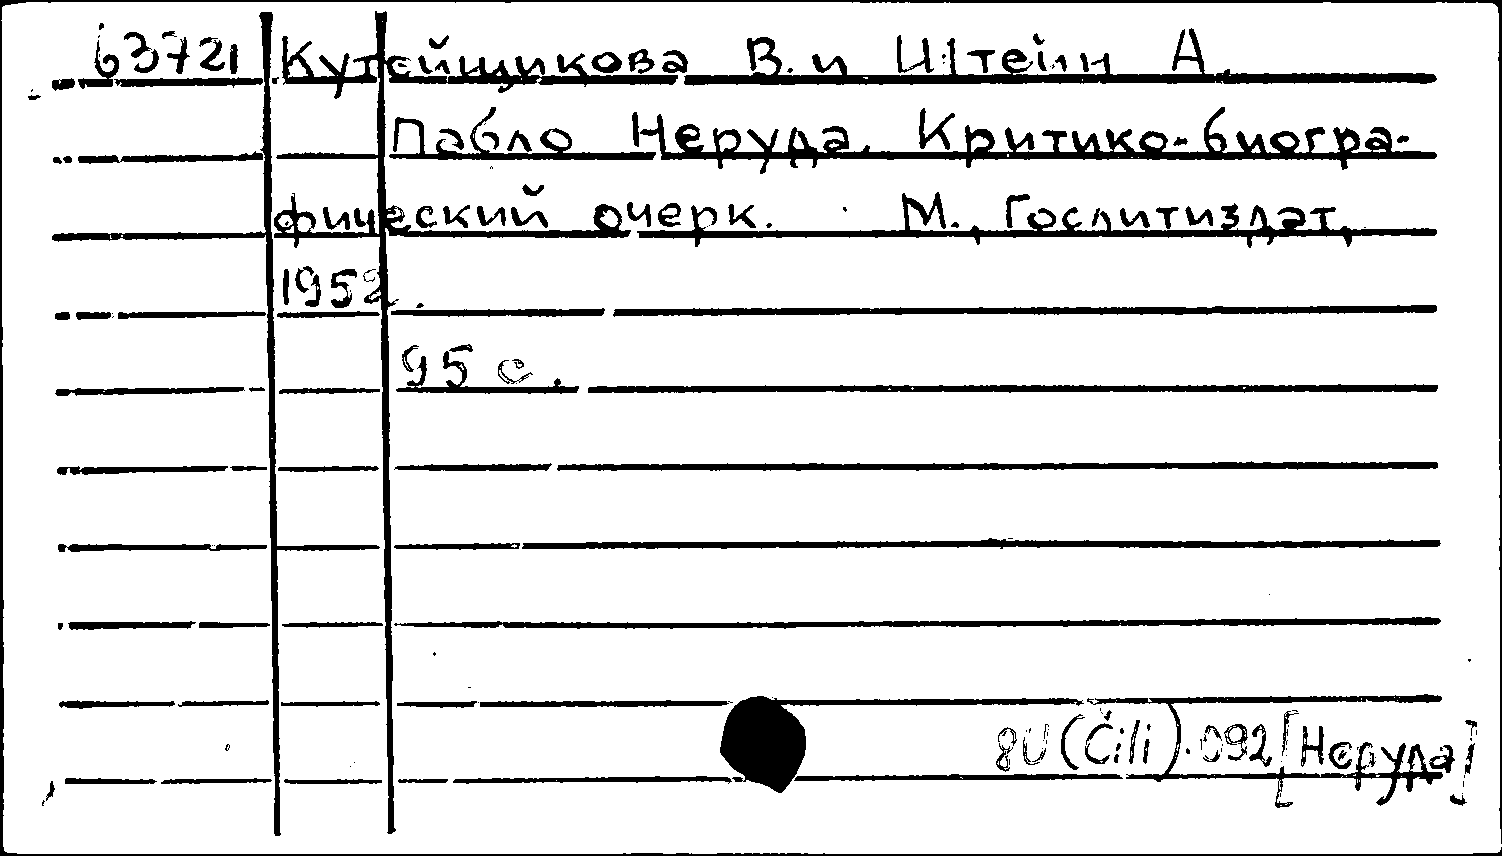 63721 Кутейщикова В. и Штейн А.
Пабло Неруда. Критико-биогра-
фический очерк. М., Гослитиздат,
1952.
95 с.
8U(Čili).092[Неруда]